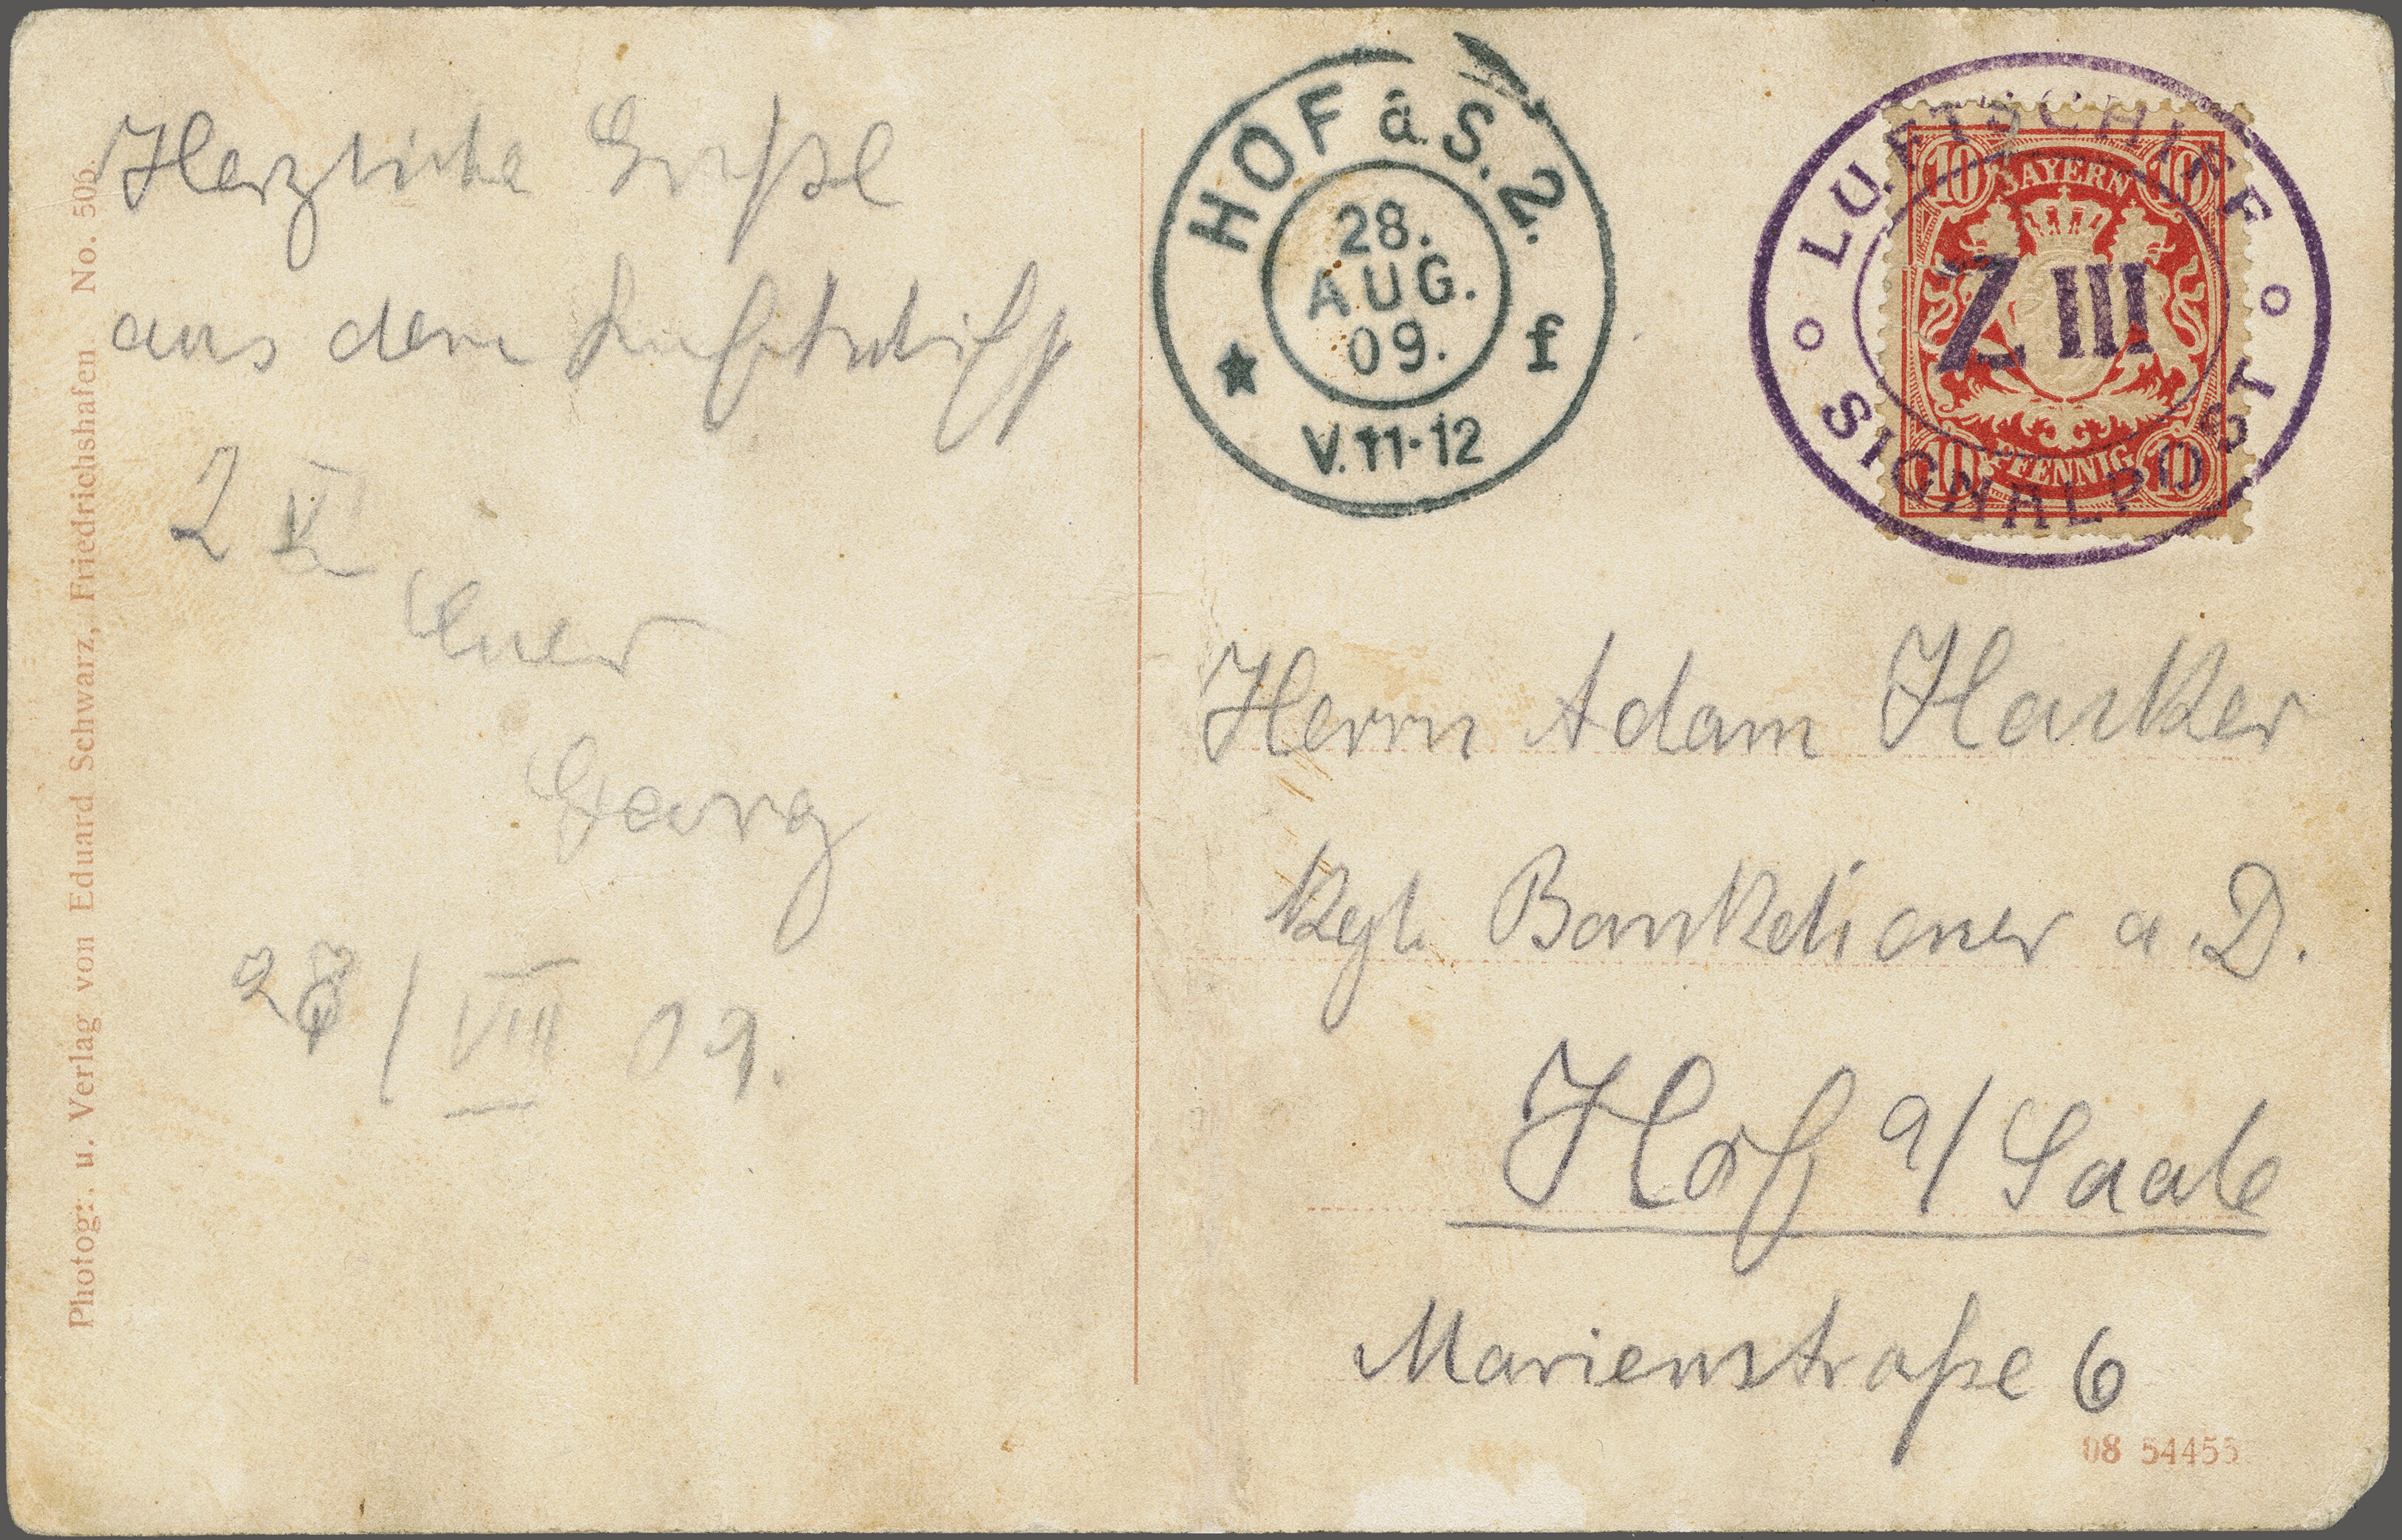 Photog:. u. Verlag von Eduard Schwarz, Friedrichshafen No. 506.
Herzliche Grüße
aus dem Luftschiff
Z VI
Euer
Georg
28/VIII 09.
HOF a S. 2.
28.
AUG.
09.
★ f
V. 11-12
LUFTSCHIFF
Z III
SIGNALPOST
10 BAYERN 10
10 PFENNIG 10
Herrn Adam
Kgl. Bankdiener a. D.
Hof a/Saale
Marienstraße 6
08 54455